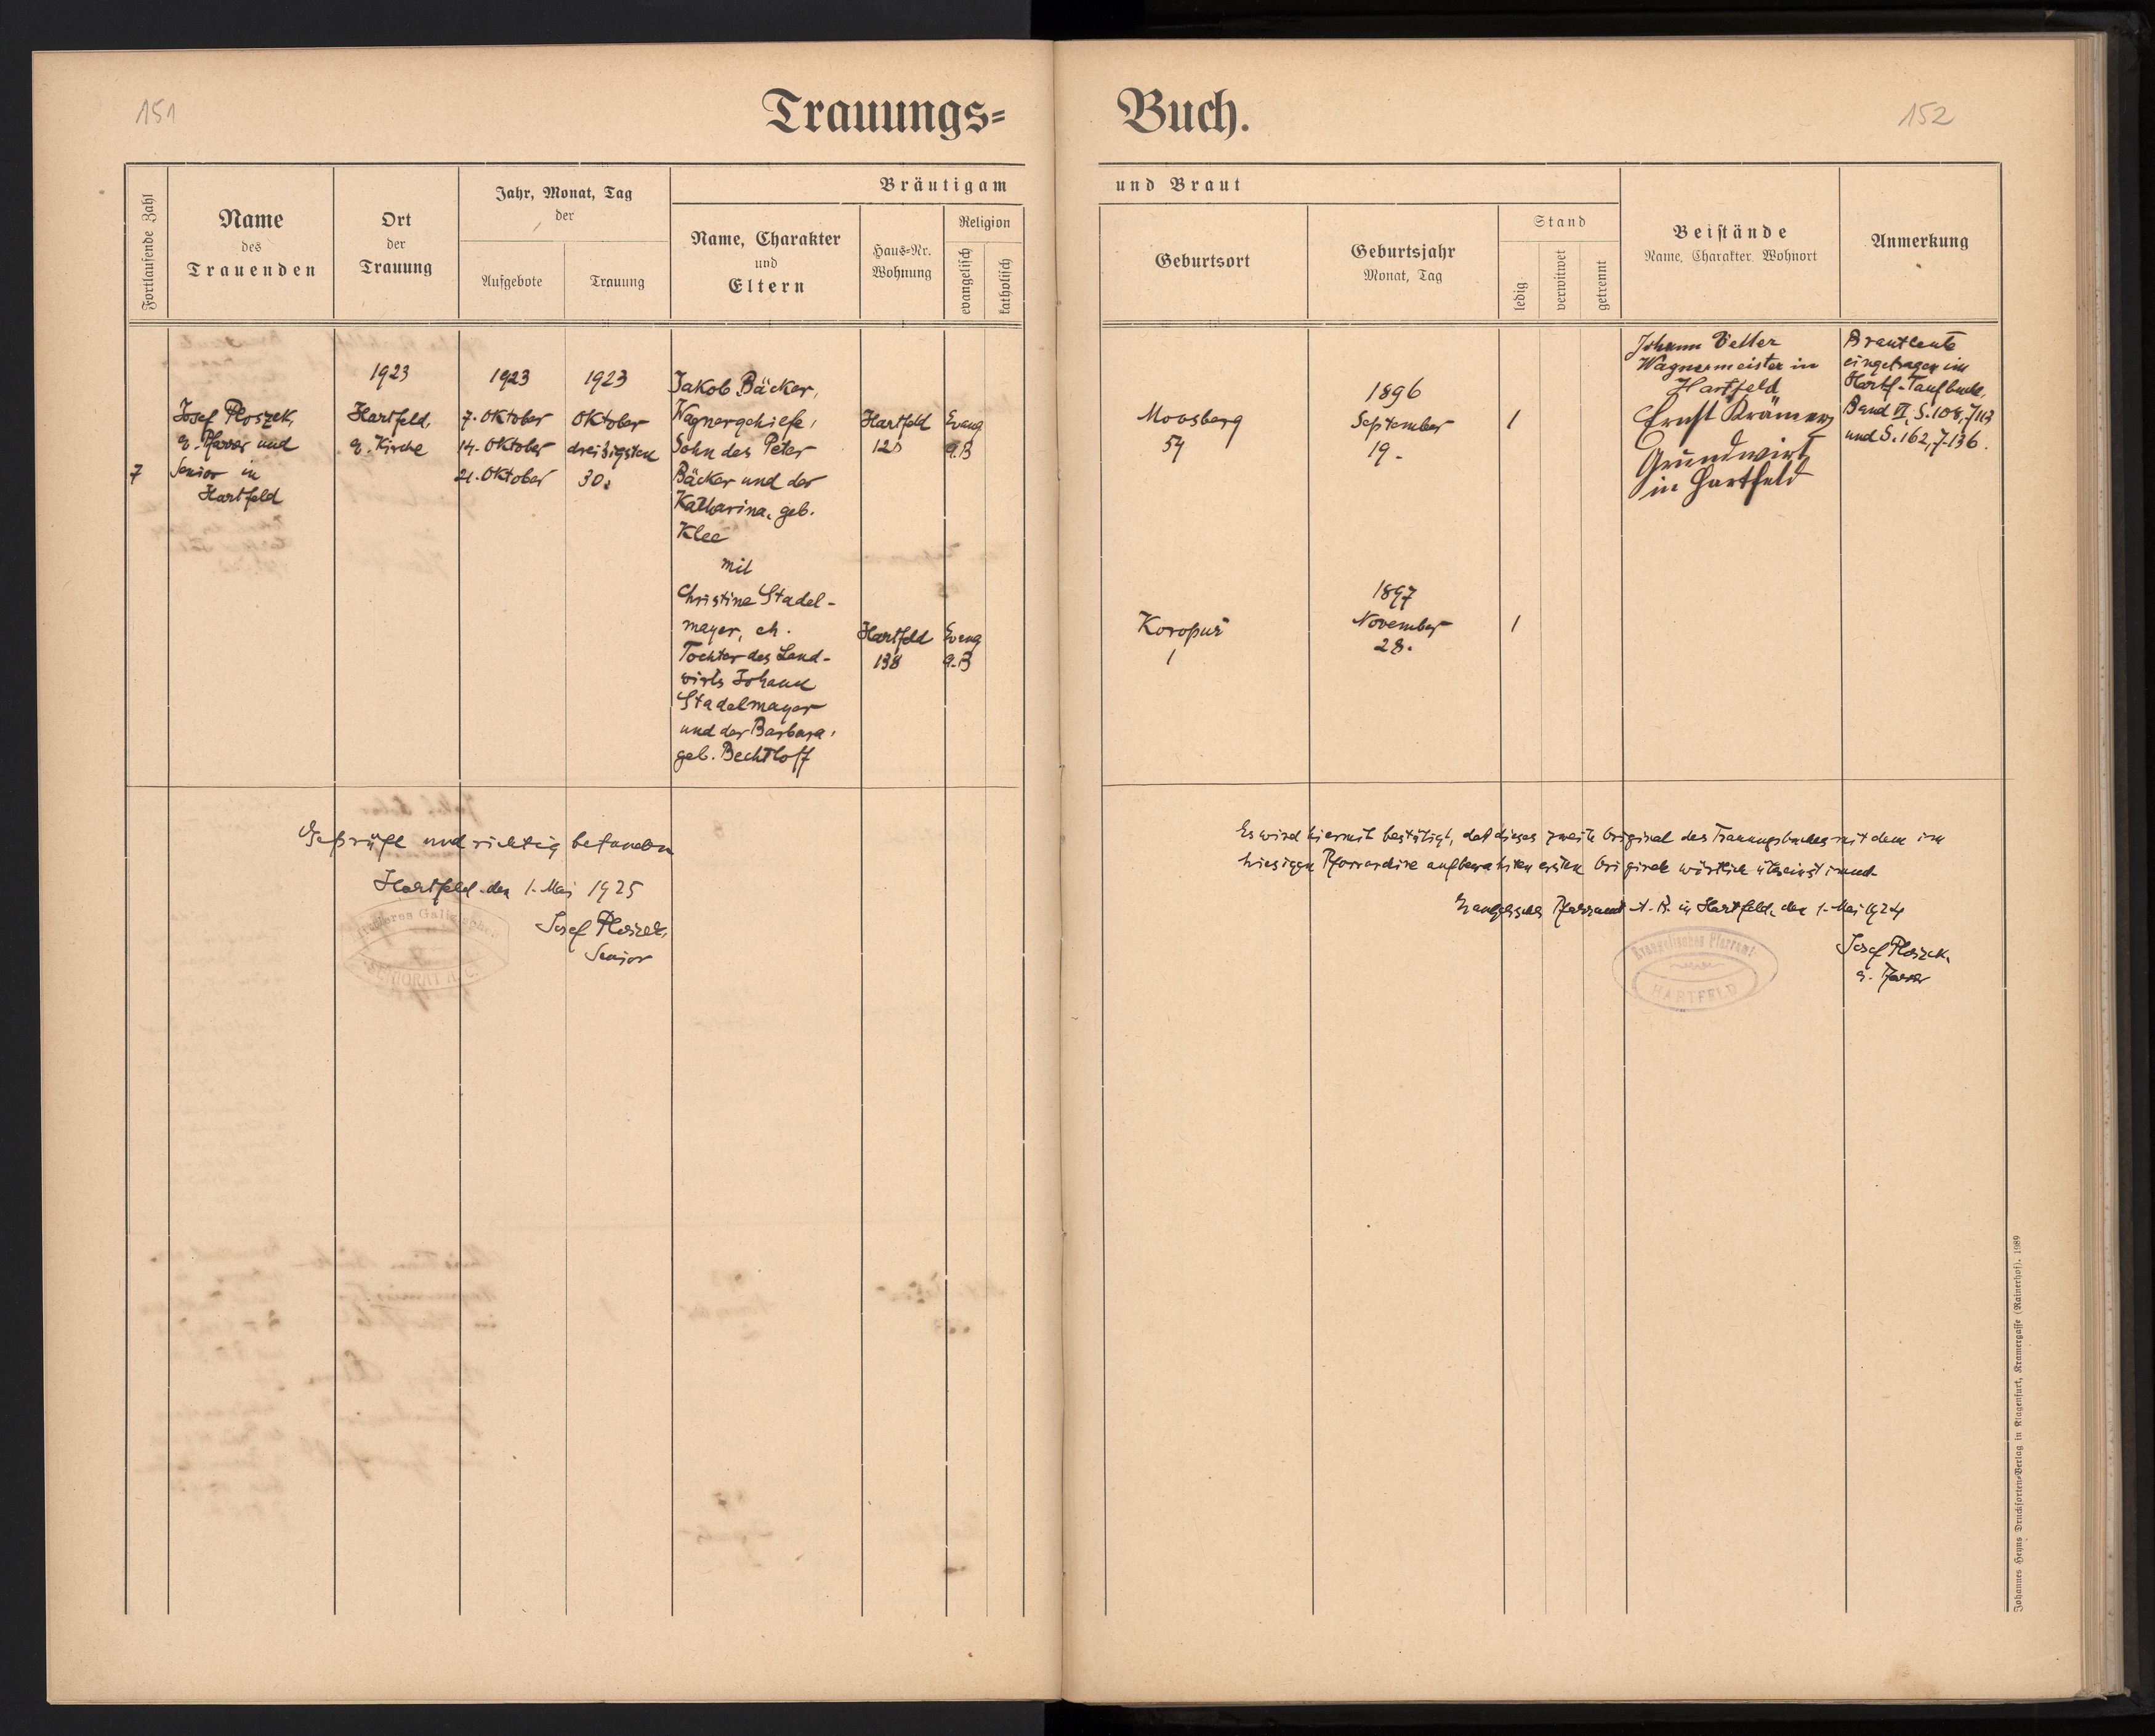 151
Trauungs=
Buch.
152
Fortlaufende Zahl
Name
des
Trauenden
Ort
der
Trauung
Jahr, Monat, Tag
der
Aufgebote
Trauung
Bräutigam
Name, Charakter
und
Eltern
Haus=Nr.
Wohnung
Religion
evangelisch
katholisch
und Braut
Geburtsort
Geburtsjahr
Monat, Tag
Stand
ledig
verwitwet
getrennt
Beistände
Name, Charakter, Wohnort
Anmerkung
7
Josef Ploszek,
e. Pfarrer und
Senior in
Hartfeld
1923
Hartfeld,
e. Kirche
1923
7. Oktober
14. Oktober
21. Oktober
1923
Oktober
dreißigsten
30.
Jakob Bäcker,
Wagnergehilfe,
Sohn des Peter
Bäcker und der
Katharina, geb.
Klee
mit
Christine Stadel-
mayer, eh.
Tochter des Land-
wirts Johann
Stadelmayer
und der Barbara,
geb. Bechtloff
Hartfeld
Evang
A.B
Hartfeld
138
Evang
A.B
Moosberg
54
1896
September
19.
1
Koropuż
1
1897
November
28.
1
Johann
Wagnermeister in
Hartfeld
Ernst Krämer
Grundwirt
in Hartfeld
Brautleute
eingetragen im
Hartf. Taufbuch,
Band VI, S. 108,
und S. 162, 7.136.
Geprüft und richtig befunden
Hartfeld den 1. Mai 1925
Josef Ploszek,
Senior
SENIORAT A.C.
Es wird hiermit bestätigt, daß dieses zweite Original des Trauungsbuches mit dem im
hiesigen Pfarrarchive aufbewahrten ersten Originale wörtlich übereinstimmt.
Evangelisches Pfarramt A. B. in Hartfeld, den 1. Mai 1924
Josef Ploszek,
e. Pfarrer
Evangelisches Pfarramt
HARTFELD
Johannes Heyns Drucksorten=Verlag in Klagenfurt, Kramergasse (Rainerhof). 1989